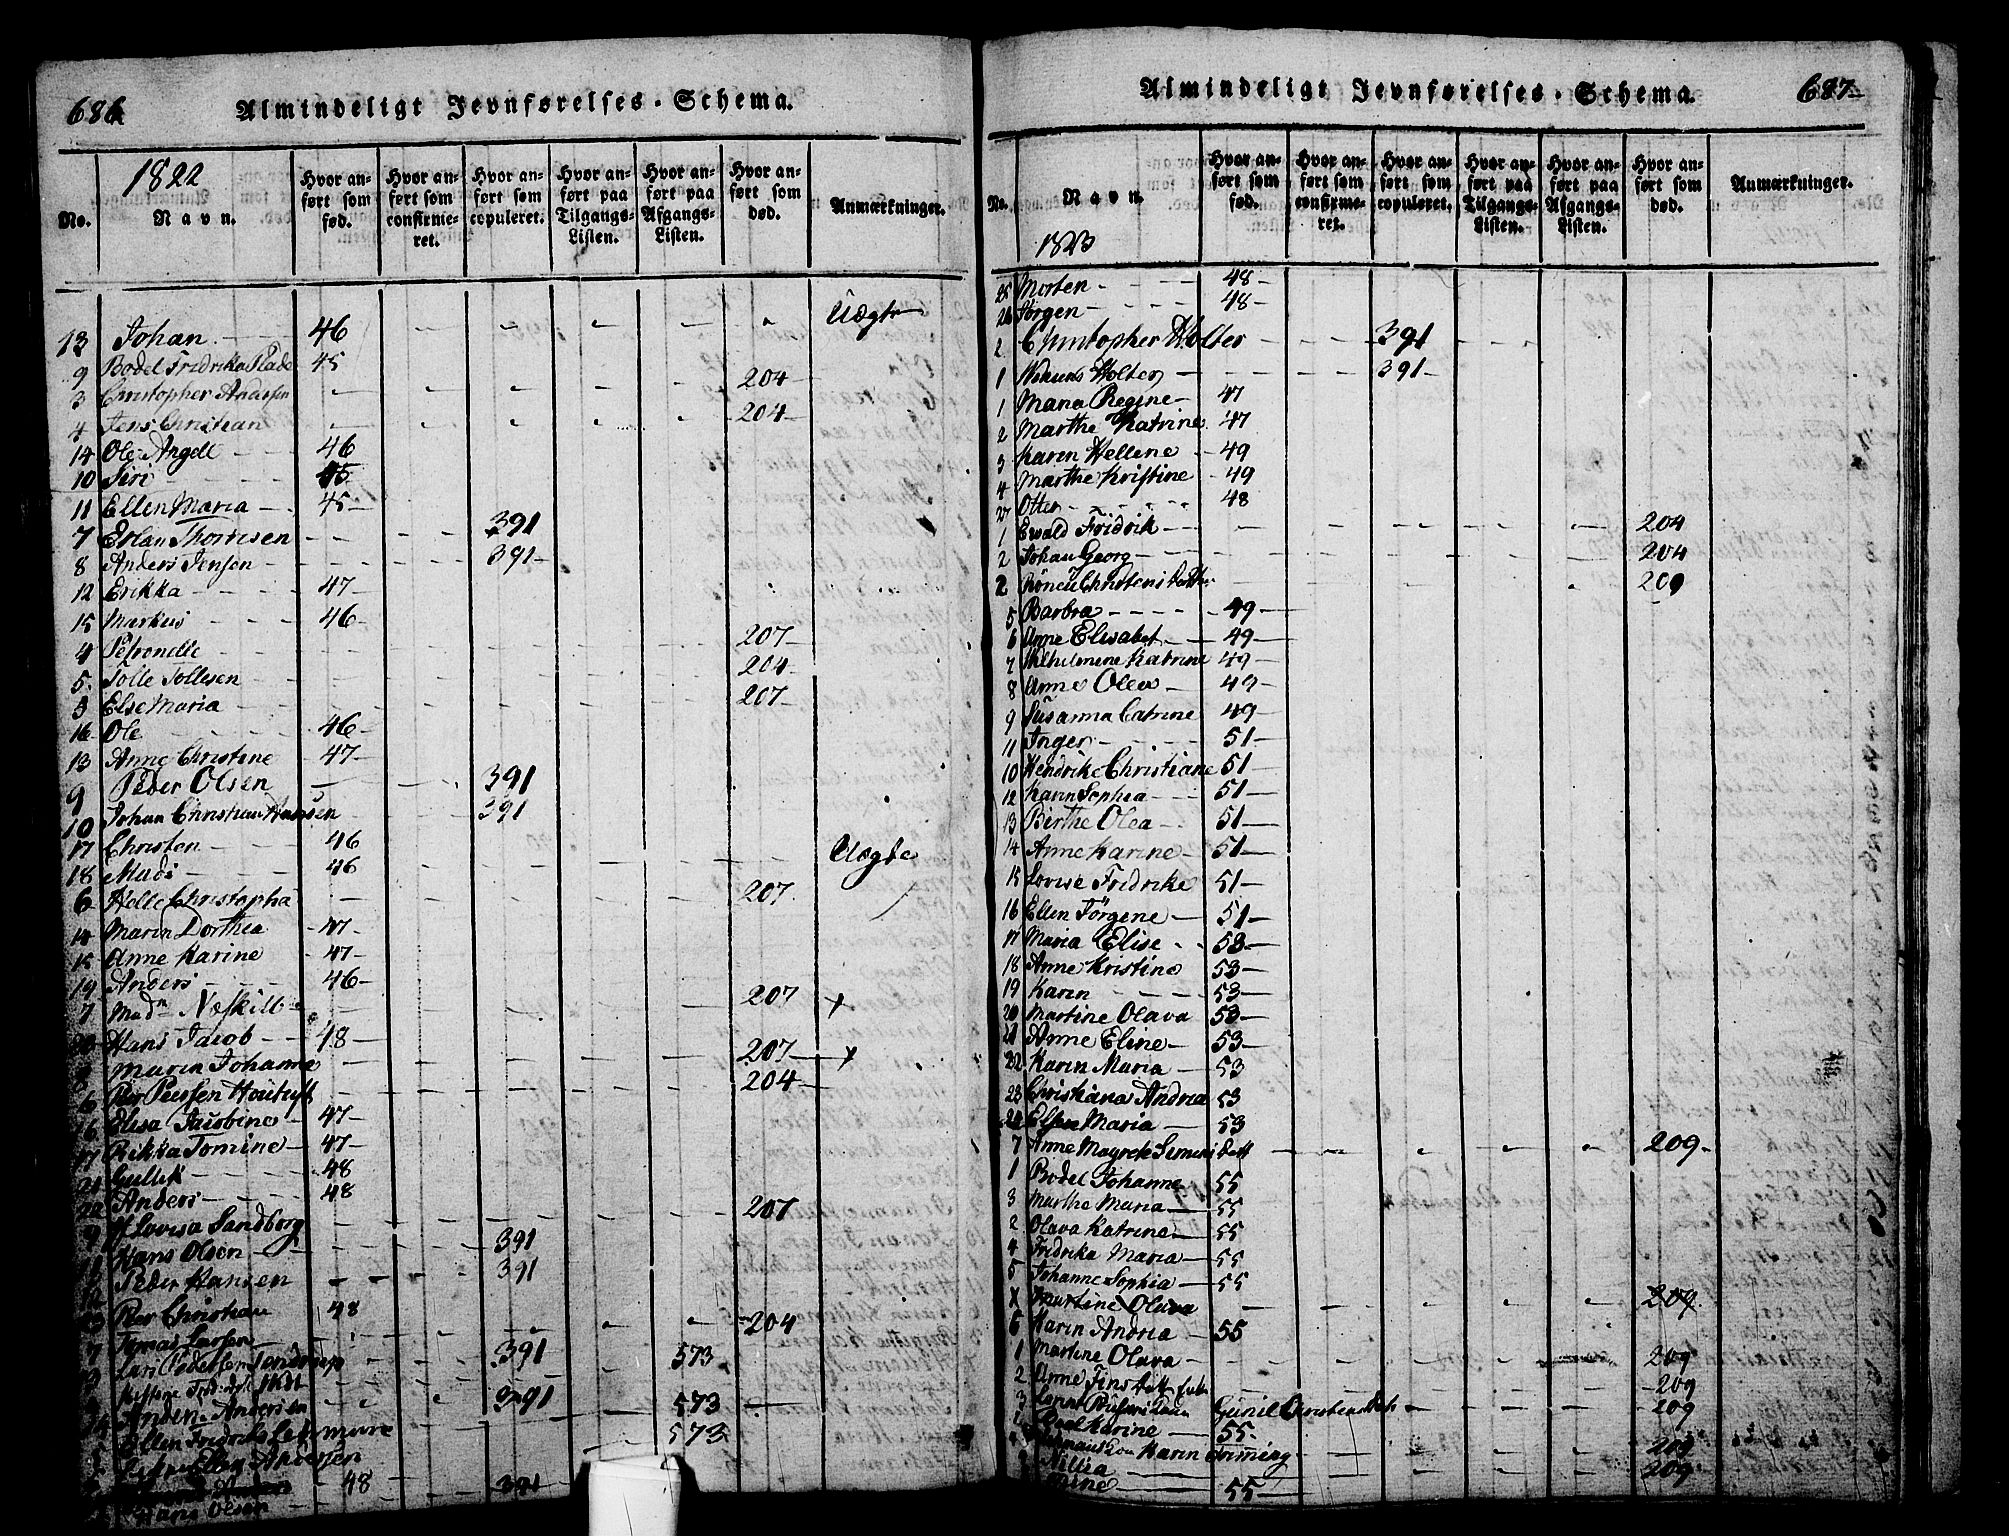 686
Almindeligt Jevnførelses-Schema.
No.
1822
Navn.
Hvor anført som fød.
Hvor anført som confirmeret.
Hvor anført som copuleret.
Hvor anført paa Tilgangs-Listen.
Hvor anført paa Afgangs-Listen.
Hvor anført som død.
Anmærkninger.
13 Johan 46 Uægte
9 Bodel Fridrika 45
3 Christopher 204
4 Jens Christian 204
14 Ole Angell 46
10 Siri 45
11 Ellen Maria 45
7 Erlan 391
8 Anders Jensen 391
12 Erikka 47
15 Markus 46
4 Petronelle 207
5 Tolle Tollesen 204
3 Else Maria 207
16 Ole 46
13 Anne Christine 47
9 Peder Olsen 391
10 Johan Christian Hansen 391
17 Christen 46
18 Madi 46 Uægte
6 Helle Christopha 207
14 Maren Dorthea 47
15 Anne Karine 47
19 Anders 46
7 Madn 207 x
Hans Jacob 48
8 Maren Johanne 207 x
6 Per 204
16 Elisa Jacobine 47
17 Rikka Tomine 47
21 Gullik 48
22 Anders 48
9 Lovisa Sandborg 207
11 Hans Olsen 391
12 Peder Hansen 391
23 Per Christian 48
7 Tomas Larsen 204
Lars Pedersen 391 573
Anders Andersen 391 573
Ellen Fridrikke 573
48
Hans Olsen 391
Almindeligt Jevnførelses-Schema.
687
No.
Navn.
1823
Hvor anført som fød.
Hvor anført som confirmeret.
Hvor anført som copuleret.
Hvor anført paa Tilgangs-Listen.
Hvor anført paa Afgangs-Listen.
Hvor anført som død.
Anmærkninger.
25 Morten 48
26 Jørgen 48
2 Christopher Holter 391
1 Holter 391
1 Maria Regine 47
2 Marthe Katrine 47
3 Karen Hellene 49
4 Marthe Kristine 49
27 Otter 48
1 Ewald Fridrik 204
2 Johan Georg 204
2 Christens Datter 209
5 Barbra 49
6 Anne Elisabet 49
7 Wilhelmine Katrine 49
8 Anne Olea 49
9 Susanna Catrine 49
11 Inger 51
10 Hendrike Christiane 51
12 Karin Sophia 51
13 Birthe Olea 51
14 Anne Karine 51
15 Lovise Fridrike 51
16 Ellen Jørgene 51
17 Maria Elise 53
18 Anne Kristine 53
19 Karen 53
20 Martine Olava 53
21 Anne Eline 53
22 Karen Maria 53
23 Christiana Andrea 53
24 Elsen Maria 53
7 Anne Magrete Simens Datt 209
1 Bodel Johanne 55
3 Marthe Maria 55
2 Olava Katrine 55
4 Fridrika Maria 55
5 Johanne Sophia 55
x Martine Olava 209
6 Karen Andrea 55
1 Martine Olava 209
2 Anne 209
3 Gunil Christensdat 209
Karine 55
Karin 209
Nillia 209
55